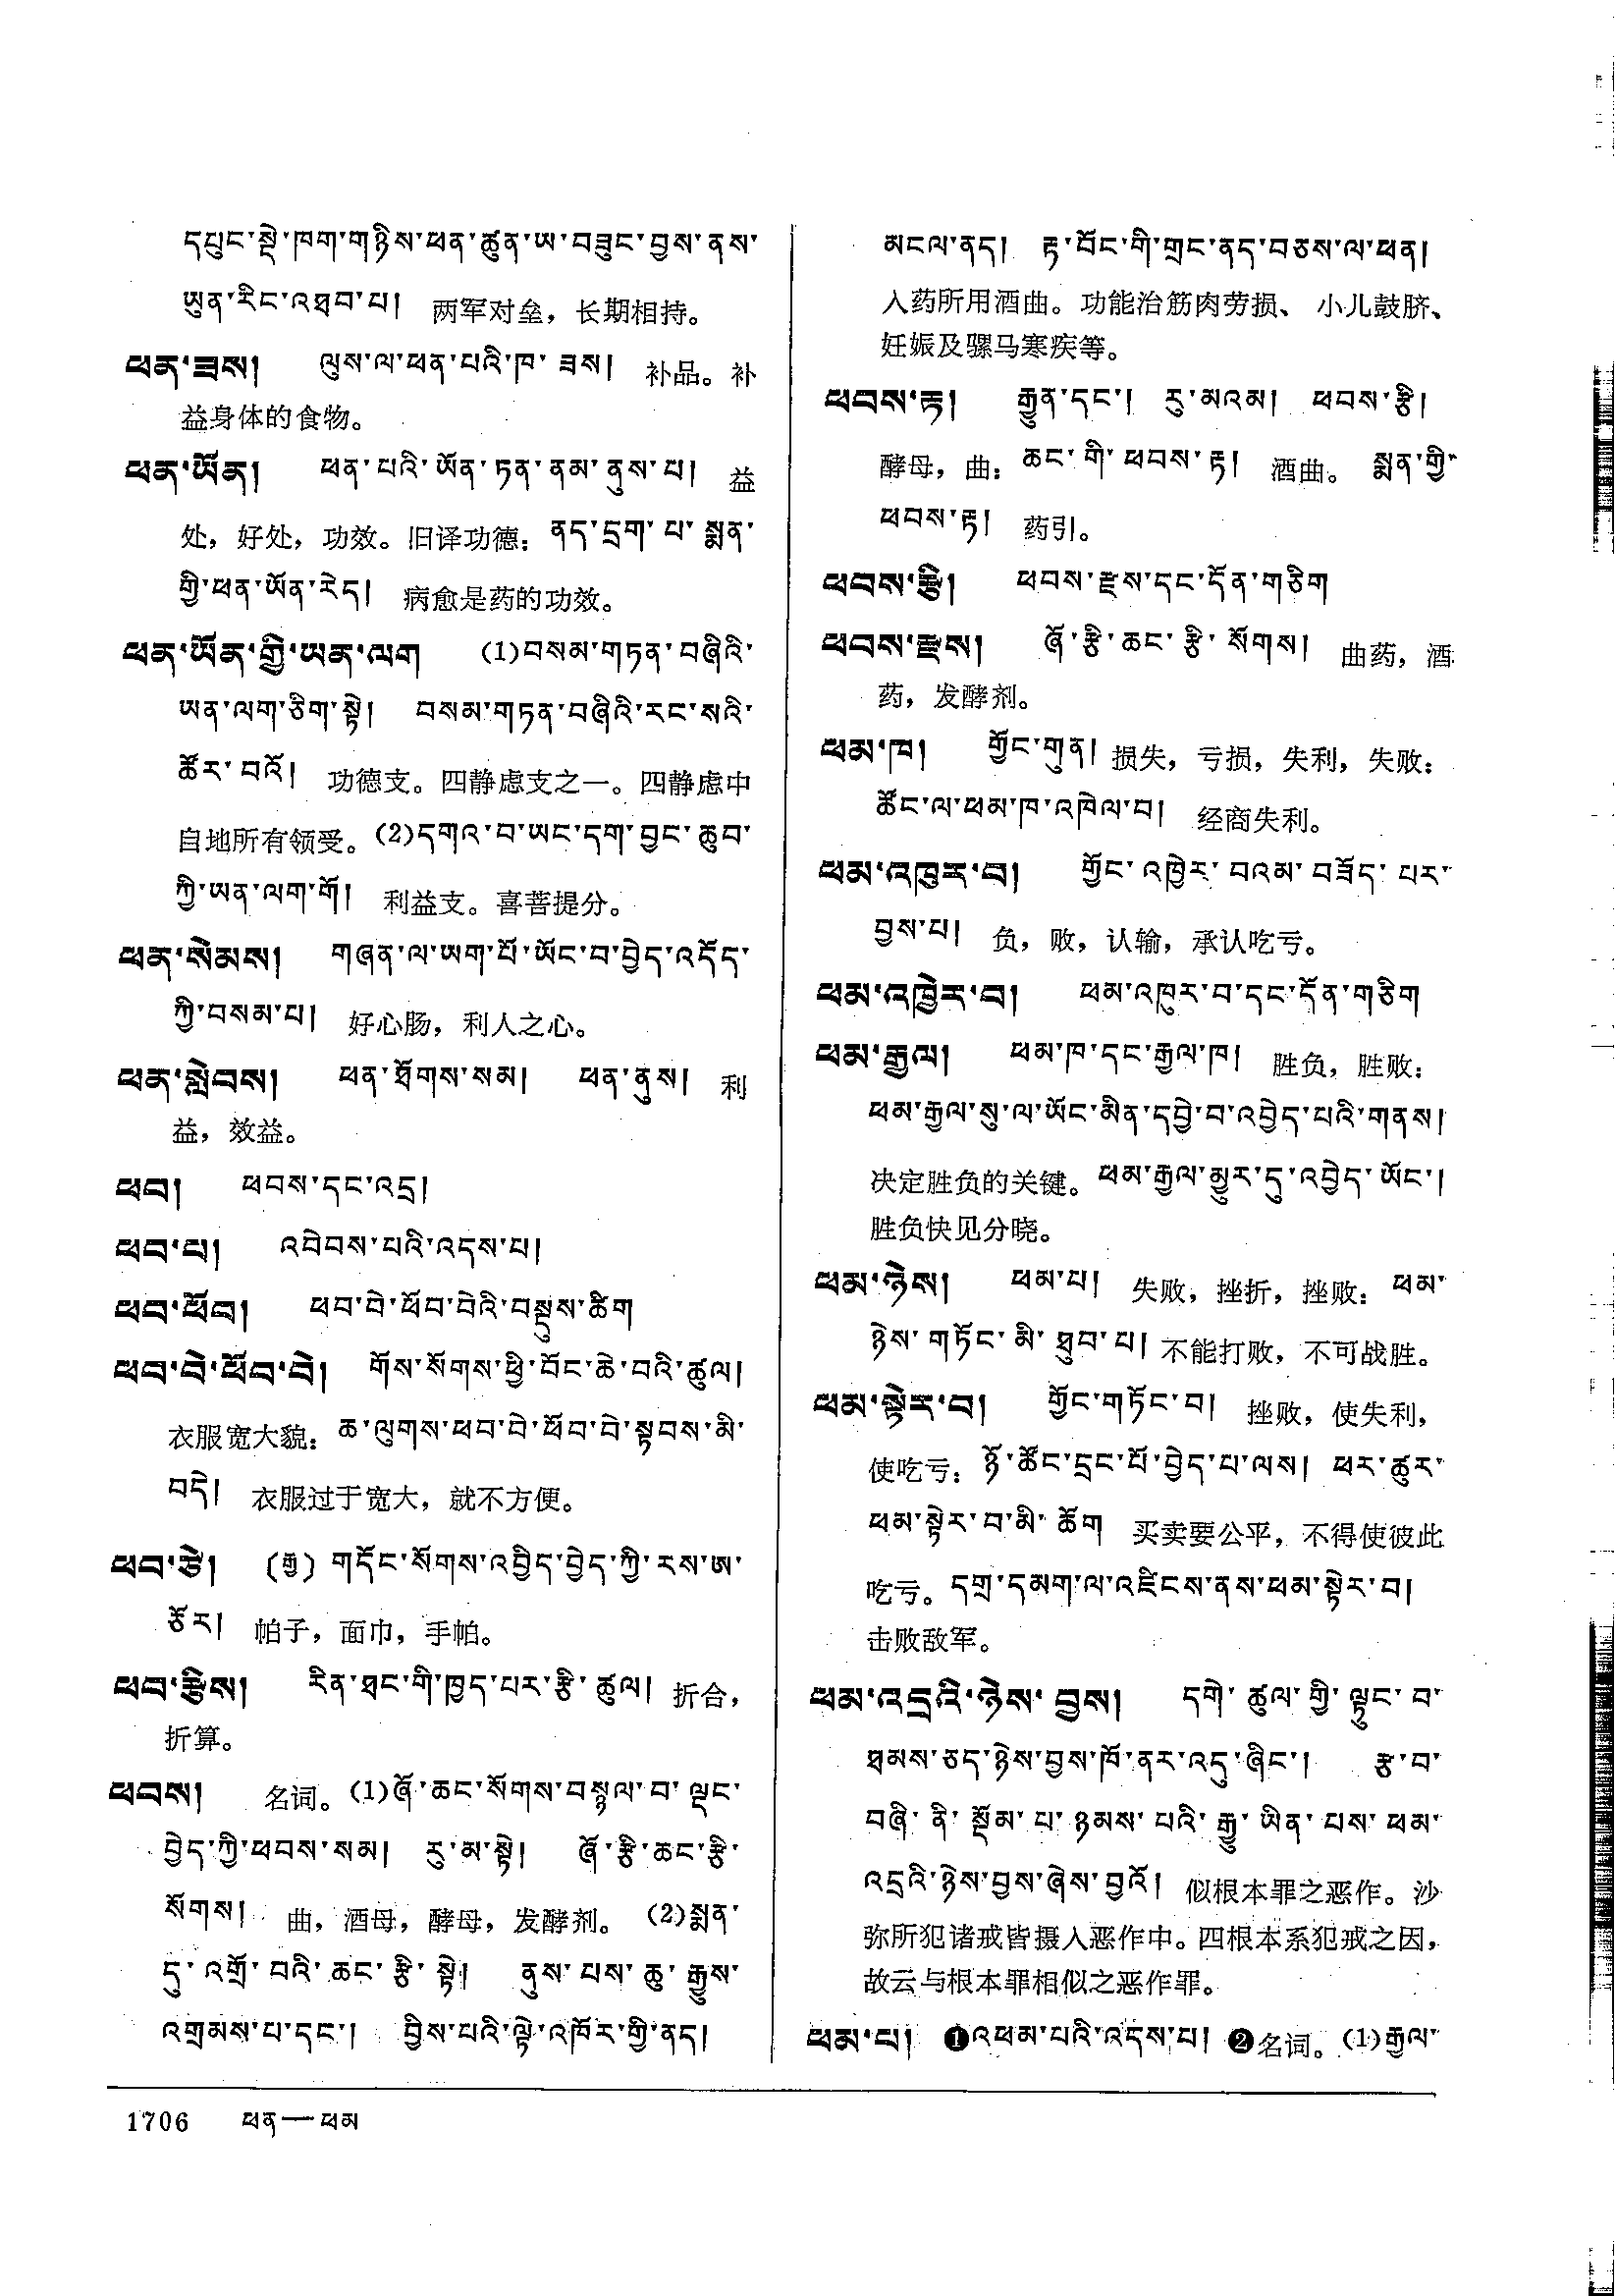 དཔུང་སྡེ་ཁག་གཉིས་ཕན་ཚུན་ཨ་བཟུང་བྱས་ནས་
ཡུན་རིང་འཐབ་པ། 两军对垒，长期相持。
ཕན་ཟས། ལུས་ལ་ཕན་པའི་ཁ་ཟས། 补品。补
益身体的食物。
ཕན་ཡོན། ཕན་པའི་ཡོན་ཏན་ནམ་ནུས་པ། 益
处，好处，功效。旧译功德：ནད་དྲག་པ་སྨན་
གྱི་ཕན་ཡོན་རེད། 病愈是药的功效。
ཕན་ཡོན་གྱི་ཡན་ལག (1)བསམ་གཏན་བཞིའི་
ཡན་ལག་ཅིག་སྟེ། བསམ་གཏན་བཞིའི་རང་སའི་
ཚོར་བའོ། 功德支。四静虑支之一。四静虑中
自地所有领受。(2)དགའ་བ་ཡང་དག་བྱང་ཆུབ་
ཀྱི་ཡན་ལག་གོ། 利益支。喜菩提分。
ཕན་སེམས། གཞན་ལ་ཡག་པོ་ཡོང་བ་བྱེད་འདོད་
ཀྱི་བསམ་པ། 好心肠，利人之心。
ཕན་སླེབས། ཕན་ཐོགས་སམ། ཕན་ནུས། 利
益，效益。
ཕབ། ཕབས་དང་འདྲ།
ཕབ་པ། འབེབས་པའི་འདས་པ།
ཕབ་ཕོབ། ཕབ་བེ་ཕོབ་བེའི་བསྡུས་ཚིག
ཕབ་བེ་ཕོབ་བེ། གོས་སོགས་ཕྱི་བོང་ཆེ་བའི་ཚུལ།
衣服宽大貌：ཆ་ལུགས་ཕབ་བེ་ཕོབ་བེ་སྟབས་མི་
བདེ། 衣服过于宽大，就不方便。
ཕབ་ཙེ། (རྒྱ) གདོང་སོགས་འབྱིད་བྱེད་ཀྱི་རས་ཨ་
ཅོར། 帕子，面巾，手帕。
ཕབ་རྩིས། རིན་ཐང་གི་ཁྱད་པར་རྩི་ཚུལ། 折合，
折算。
ཕབས། 名词。(1)ཞོ་ཆང་སོགས་བསྙལ་བ་ལྡང་
བྱེད་ཀྱི་ཕབས་སམ། རུ་མ་སྟེ། ཞོ་རྩི་ཆང་རྩི་
སོགས། 曲，酒母，酵母，发酵剂。(2)སྨན་
དུ་འགྲོ་བའི་ཆང་རྩི་སྟེ། ནུས་པས་ཆུ་རྒྱུས་
འགྲམས་པ་དང་། བྱིས་པའི་ལྟེ་འཁོར་གྱི་ནད།
མངལ་ནད། རྟ་བོང་གི་གྲང་ནད་བཅས་ལ་ཕན།
入药所用酒曲。功能治筋肉劳损、小儿鼓脐、
妊娠及骡马寒疾等。
ཕབས་རྟ། རྒྱུན་དང་། རུ་མའམ། ཕབས་རྩི།
酵母，曲：ཆང་གི་ཕབས་རྟ། 酒曲。 སྨན་གྱི་
ཕབས་རྟ། 药引。
ཕབས་རྩི། ཕབས་རྫས་དང་དོན་གཅིག
ཕབས་རྫས། ཞོ་རྩི་ཆང་རྩི་སོགས། 曲药，酒
药，发酵剂。
ཕམ་ཁ། གྱོང་གུན། 损失，亏损，失利，失败：
ཚོང་ལ་ཕམ་ཁ་འཁེལ་བ། 经商失利。
ཕམ་འཁུར་བ། གྱོང་འཁྱེར་བའམ་བཟོད་པར་
བྱས་པ། 负，败，认输，承认吃亏。
ཕམ་འཁྱེར་བ། ཕམ་འཁུར་བ་དང་དོན་གཅིག
ཕམ་རྒྱལ། ཕམ་ཁ་དང་རྒྱལ་ཁ། 胜负，胜败：
ཕམ་རྒྱལ་སུ་ལ་ཡོང་མིན་དབྱེ་བ་འབྱེད་པའི་གནས།
决定胜负的关键。ཕམ་རྒྱལ་མྱུར་དུ་འབྱེད་ཡོང་།
胜负快见分晓。
ཕམ་ཉེས། ཕམ་པ། 失败，挫折，挫败：ཕམ་
ཉེས་གཏོང་མི་ཐུབ་པ། 不能打败，不可战胜。
ཕམ་སྟེར་བ། གྱོང་གཏོང་བ། 挫败，使失利，
使吃亏：ཉོ་ཚོང་དྲང་པོ་བྱེད་པ་ལས། ཕར་ཚུར་
ཕམ་སྟེར་བ་མི་ཆོག 买卖要公平，不得使彼此
吃亏。དགྲ་དམག་ལ་འཛིངས་ནས་ཕམ་སྟེར་བ།
击败敌军。
ཕམ་འདྲའི་ཉེས་བྱས། དགེ་ཚུལ་གྱི་ལྟུང་བ་
ཐམས་ཅད་ཉེས་བྱས་ཁོ་ནར་འདུ་ཞིང་། རྩ་བ་
བཞི་ནི་སྡོམ་པ་ཉམས་པའི་རྒྱུ་ཡིན་པས་ཕམ་
འདྲའི་ཉེས་བྱས་ཞེས་བྱའོ། 似根本罪之恶作。沙
弥所犯诸戒皆摄入恶作中。四根本系犯戒之因，
故云与根本罪相似之恶作罪。
ཕམ་པ། ❶འཕམ་པའི་འདས་པ། ❷名词。(1)རྒྱལ་
1706 ཕན—ཕམ